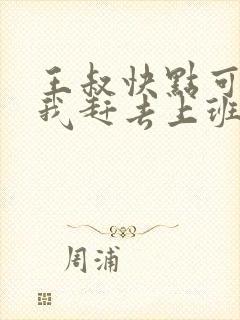 王叔快點可
我赶去上班
周浦